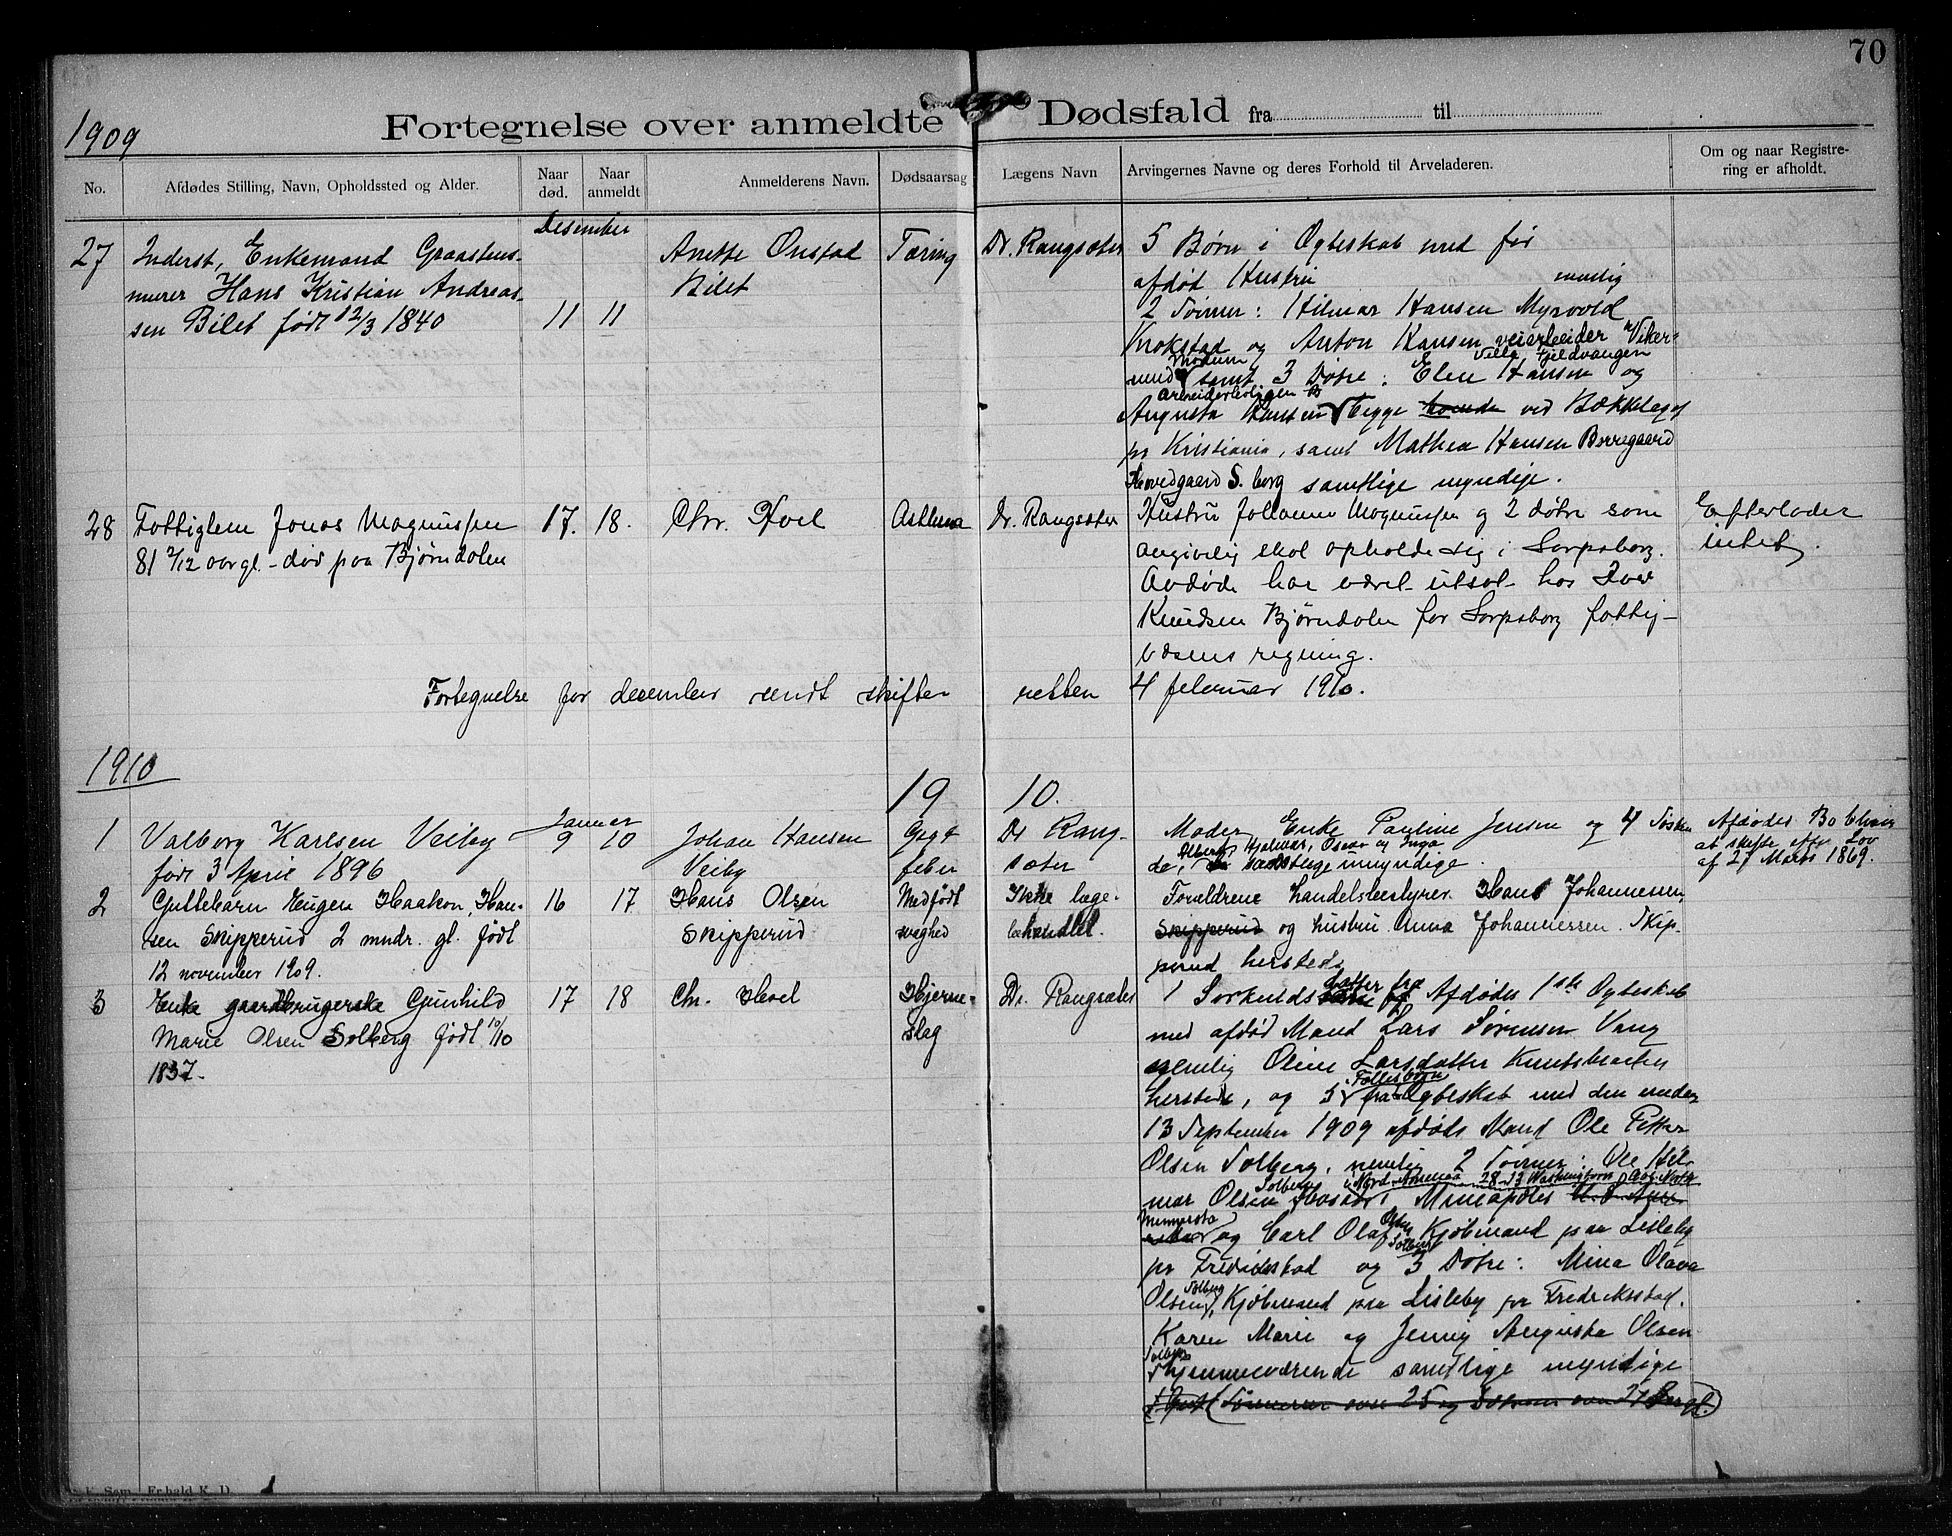 70
1909
Fortegnelse over anmeldte Dødsfald fra til
No.
Afdødes Stilling, Navn, Opholdssted og Alder.
Naar død.
Naar anmeldt
Anmelderens Navn.
Dødsaarsag
Lægens Navn
Arvingernes Navne og deres Forhold til Arveladeren.
Om og naar Registre-
ring er afholdt.
Desember
27
Inderst, Enkemand Graastens-
murer Hans Kristian Andreas-
sen Bilet født 12/3 1840
11
11
Anette Onstad
Bilet
Tæring
Dr. Rangsæter
5 Børn i Ægteskab med før
afdød Hustru nemlig
2 Sønner: Hilmar Hansen Myrvold
Krokstad og Anton Hansen veiarbeider Viker-
sund Modum samt 3 Døtre: Elen Hansen Villa Fjeldvangen og
Augusta Hansen Arbeiderboligen begge boende ved Bækkelaget
pr Kristiania, samt Mathea Hansen Borregaard
Hovedgaard S.borg samtlige myndige.
28
Fattiglem Jonas Magnussen
81 2/12 aar gl. - død paa Bjørndalen
17.
18.
Chr. Hoel
Asthma
Dr. Rangsæter
Hustru Johanne Magnussen og 2 døtre som
angivelig skal opholde sig i Sarpsborg.
Avdøde har været utsat hos Iver
Knudsen Bjørndalen for Sarpsborg fattig-
væsens regning.
Efterlader
intet.
Fortegnelse for desember sendt skifteretten 4 februar 1910.
1910
1910.
Januar
1
Valborg Karlsen Veiby
født 3 April 1896
9
10
Johan Hansen
Veiby
Gigt
feber
Dr Rang-
sæter
Moder Enke Pauline Jensen og 4 Søsken
de, Albert, Hjalmar, Oscar og Inga samtlige umyndige.
Afdødes Bo bliver
at skifte efter Lov
af 27 Marts 1869.
2
Guttebarn Eugen Haakon Han-
sen Skipperud 2 mndr. gl. født
12 november 1909.
16
17
Hans Olsen
Skipperud
Medfødt
svaghed
Ikke læge-
behandlet.
Forældrene handelsbestyrer Hans Johannessen,
Skipperud og hustru Anna Johannessen. Skip-
perud hersteds
3
Enke gaardbrugerske Gunhild
Marie Olsen Solberg født 10/10
1837.
17
18
Chr. Hoel
Hjerne-
slag
Dr. Rangsæter
1 Særkulds datter fra Afdødes 1ste Ægteskab
med afdød Mand Lars Sørensen Vang
nemlig Oline Larsdatter Knutsbraaten
hersteds, og 5 Fællesbørn fra Ægteskab med den under
13 September 1909 afdøde Mand Ole Petter
Olsen Solberg, nemlig 2 Sønner: Ole Hil-
mar Olsen Solberg i Nord Amerika 28-13 Washington Ave. North
Mineapoles
Minnesota og Carl Olaf Olsen Solberg Kjøbmand paa Lisleby
pr Fredrikstad og 3 Døtre: Mina Olava
Olsen Solberg, Kjøbmand paa Lisleby pr Fredriksstad.
Karen Marie og Jenny Augusta Olsen
Solberg hjemmeværende samtlige myndige
Sønnerne over 25 og
K. Søm. Fr.hald K. D.